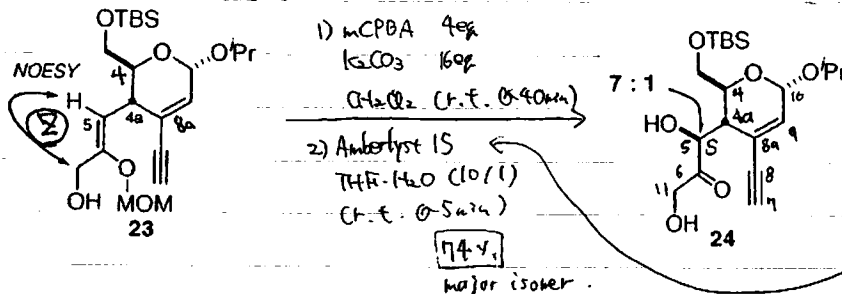 OTBS
NOESY
H
Z
5
4
4a
8a
O
OⁱPr
O
OH
MOM
23
1) mCPBA 4eq
K2CO3 16eq
CH2Cl2 (r.t. 40min)
2) Amberlyst 15
THF-H2O (10/1)
(r.t. 5min)
74%
major isomer.
OTBS
7 : 1
O
OⁱPr
4
10
4a
9
HO
5
S
8a
6
O
8
7
11
OH
24